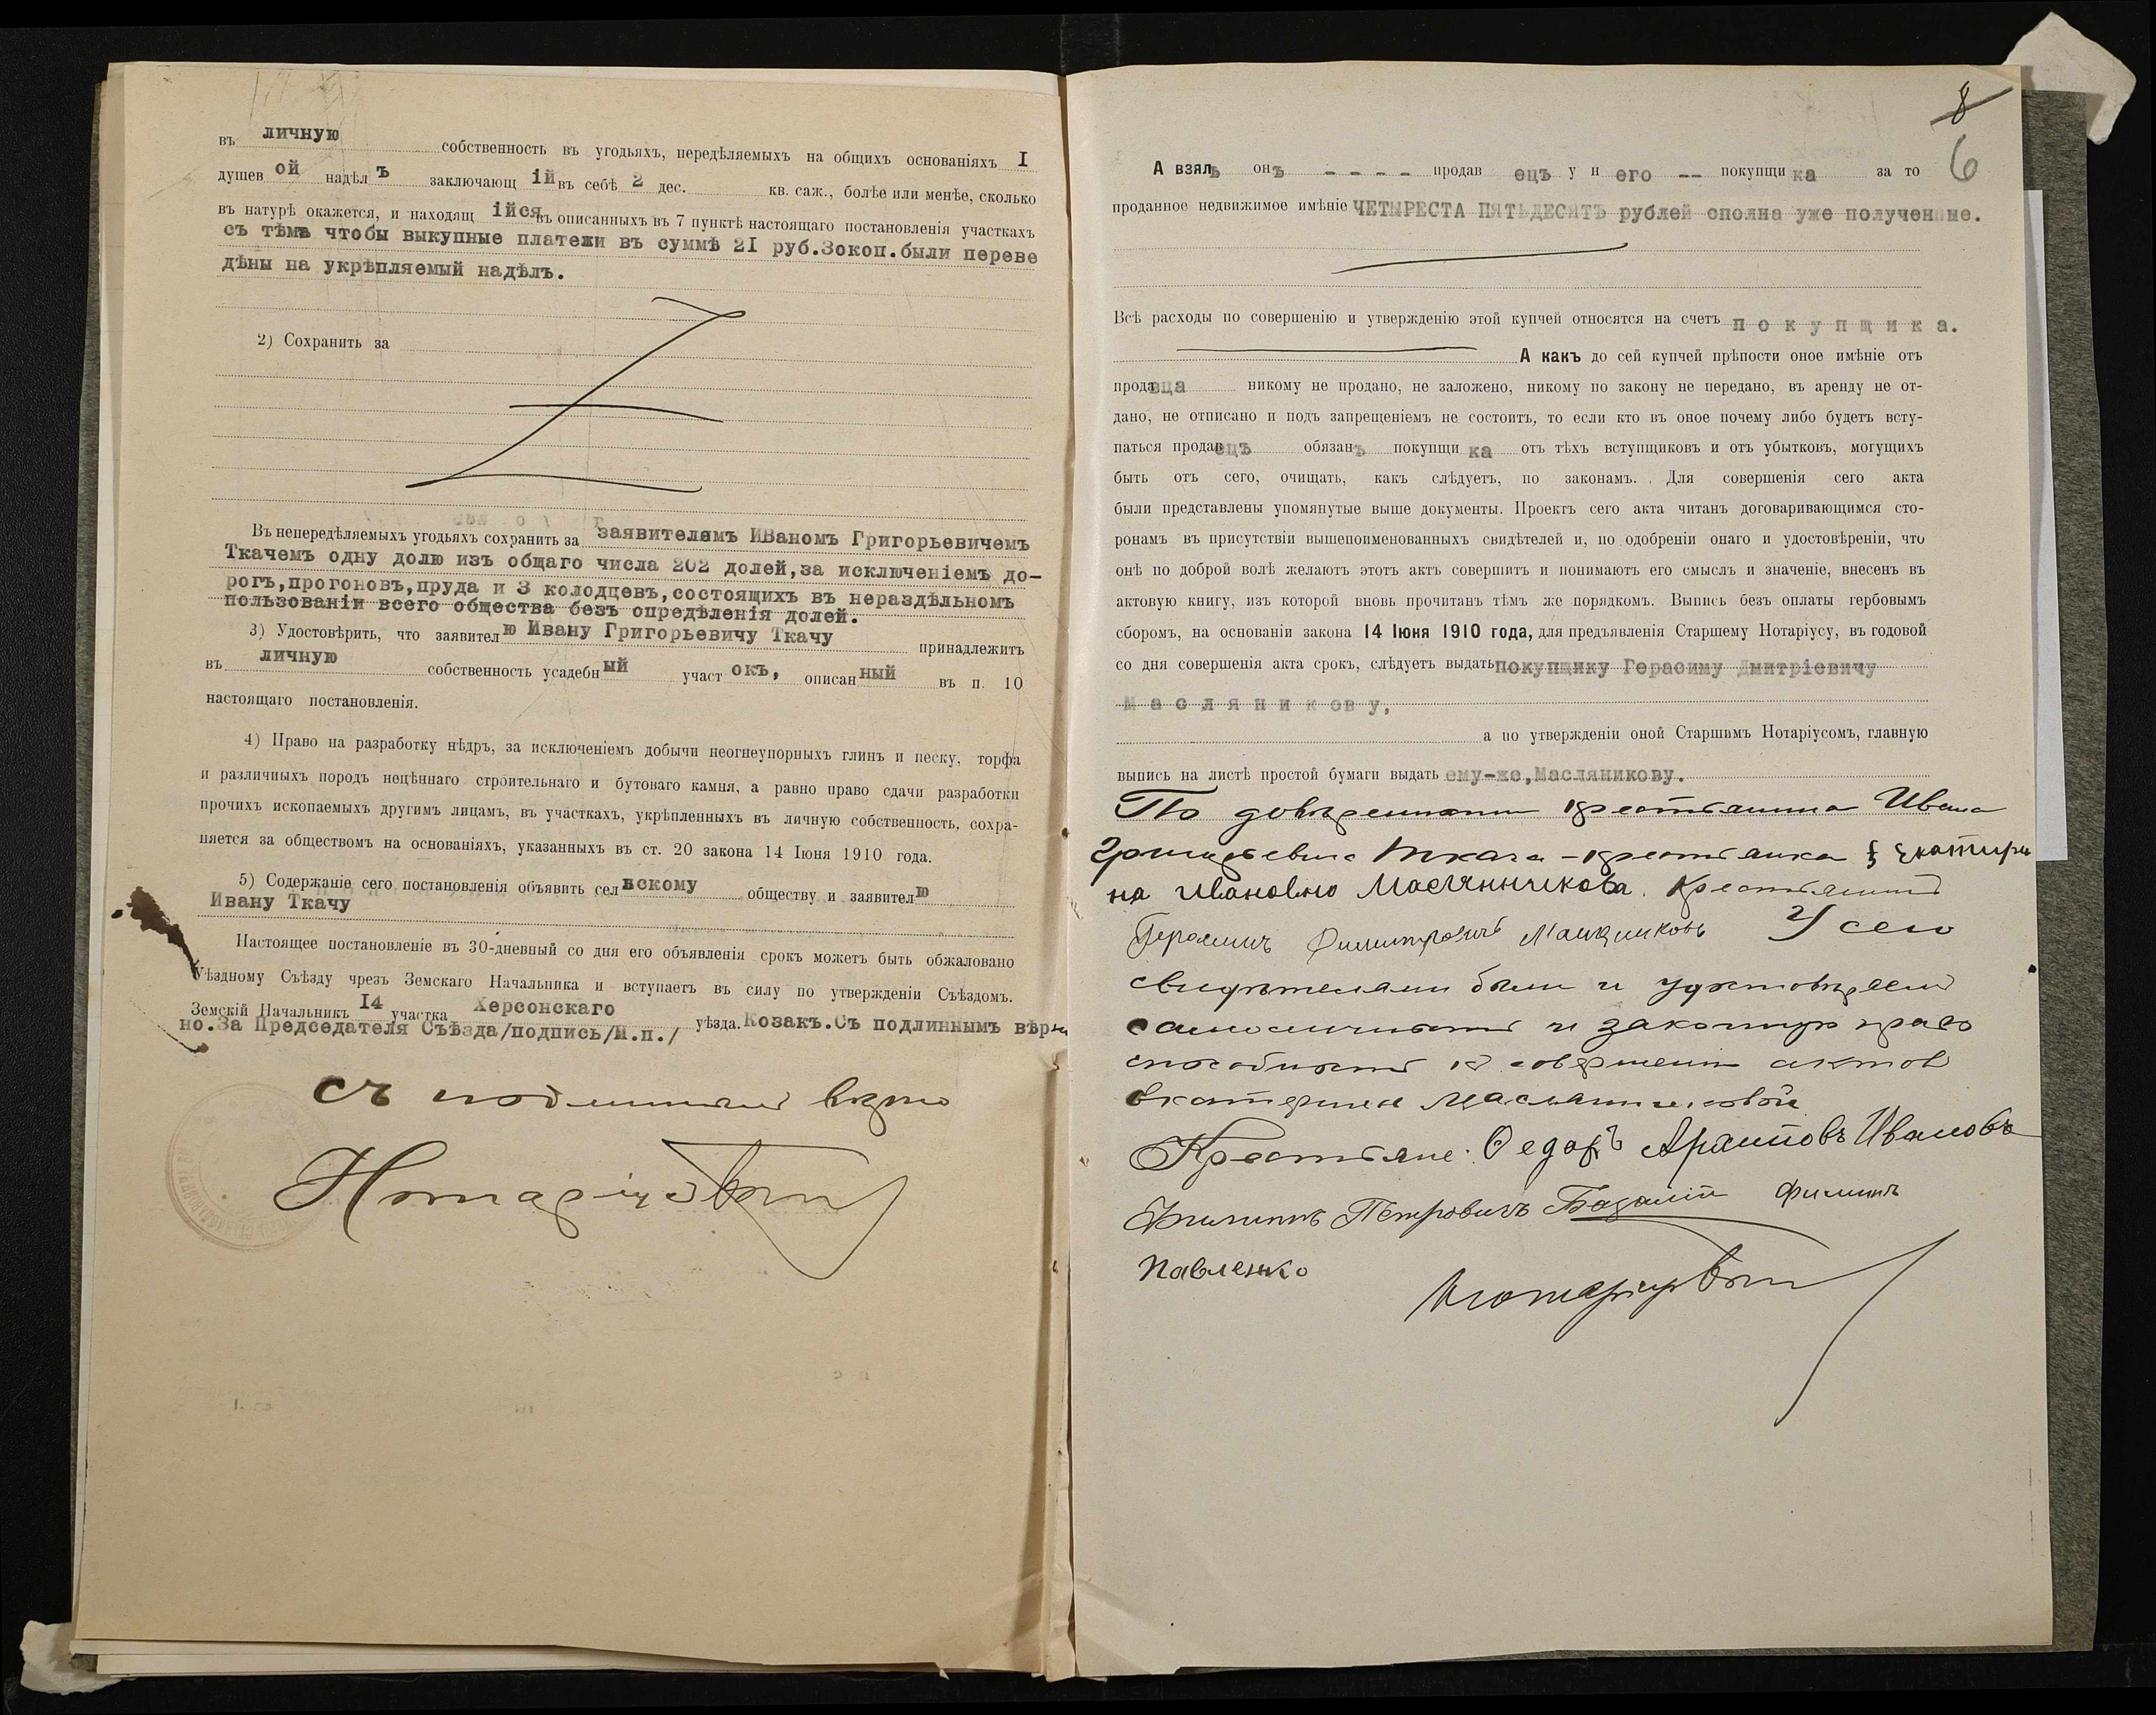 въ личную собственность въ угодьяхъ, передѣляемыхъ на общихъ основаніяхъ I
душев ой надѣл ъ заключающ ій въ себѣ 2 дес. кв. саж., болѣе или менѣе, сколько
въ натурѣ окажется, и находящ ійся въ описанныхъ въ 7 пунктѣ настоящаго постановленія участкахъ
съ тѣмъ чтобы выкупные платежи въ суммѣ 2I руб.3окоп.были переве
дѣны на укрѣпляемый надѣлъ.
2) Сохранить за
Въ непередѣляемыхъ угодьяхъ сохранить за заявителямъ ИВаномъ Григорьевичемъ
Ткачемъ одну долю изъ общаго числа 202 долей,за исключеніемъ до-
рогъ,прогоновъ,пруда и 3 колодцевъ,состоящихъ въ нераздѣльномъ
пользованіи всего общества безъ опредѣленія долей.
3) Удостовѣрить, что заявител ю Ивану Григорьевичу Ткачу принадлежитъ
въ личную собственность усадебн ый участ окъ, описан ный въ п. 10
настоящаго постановленія.
4) Право на разработку нѣдръ, за исключеніемъ добычи неогнеупорныхъ глинъ и песку, торфа
и различныхъ породъ нецѣннаго строительнаго и бутоваго камня, а равно право сдачи разработки
прочихъ ископаемыхъ другимъ лицамъ, въ участкахъ, укрѣпленныхъ въ личную собственность, сохра-
няется за обществомъ на основаніяхъ, указанныхъ въ ст. 20 закона 14 Іюня 1910 года.
5) Содержаніе сего постановленія объявить сел ьскому обществу и заявител ю
Ивану Ткачу
Настоящее постановленіе въ 30-дневный со дня его объявленія срокъ можетъ быть обжаловано
Уѣздному Съѣзду чрезъ Земскаго Начальника и вступаетъ въ силу по утвержденіи Съѣздомъ.
Земскій Начальникъ I4 участка Херсонскаго уѣзда. Козакъ.Съ подлиннымъ вѣрн
но.За Предсѣдателя Съѣзда/подпись/М.п./
Съ подлиннымъ вѣрно
Нотаріусъ
8
6
А взялъ онъ - - - - продав ецъ у н его -- покупщи ка за то
проданное недвижимое имѣніе ЧЕТЫРЕСТА ПЯТЬДЕСЯТЪ рублей сполна уже полученные.
Всѣ расходы по совершенію и утвержденію этой купчей относятся на счетъ покупщика.
А какъ до сей купчей прѣпости оное имѣніе отъ
продавца никому не продано, не заложено, никому по закону не передано, въ аренду не от-
дано, не отписано и подъ запрещеніемъ не состоитъ, то если кто въ оное почему либо будетъ всту-
паться продавецъ обязанъ покупщи ка отъ тѣхъ вступщиковъ и отъ убытковъ, могущихъ
быть отъ сего, очищать, какъ слѣдуетъ, по законамъ. Для совершенія сего акта
были представлены упомянутые выше документы. Проектъ сего акта читанъ договаривающимся сто-
ронамъ въ присутствіи вышепоименованныхъ свидѣтелей и, по одобреніи онаго и удостовѣреніи, что
онѣ по доброй волѣ желаютъ этотъ актъ совершить и понимаютъ его смыслъ и значеніе, внесенъ въ
актовую книгу, изъ которой вновь прочитанъ тѣмъ же порядкомъ. Выпись безъ оплаты гербовымъ
сборомъ, на основаніи закона 14 Іюня 1910 года, для предъявленія Старшему Нотаріусу, въ годовой
со дня совершенія акта срокъ, слѣдуетъ выдать покупщику Герасиму Дмитріевичу
Масляникову,
а по утвержденіи оной Старшимъ Нотаріусомъ, главную
выпись на листѣ простой бумаги выдать ему-же,Масляникову.
По довѣренности крестьянина Ивана
Григорьевича Ткача - крестьянка Екатири
на Ивановно Маслянникова. Крестьянинъ
Герасимъ Димитровичъ Маслиниковъ У сего
свидѣтелями были и удостовѣряемъ
самоличность и законную право
способность къ совершенію актовъ
Екатерины Маслянниковой
Крестьяне: Ѳедоръ Ивановъ
Филиппъ Петровичъ Филиппъ
Павленко
Нотаріусъ